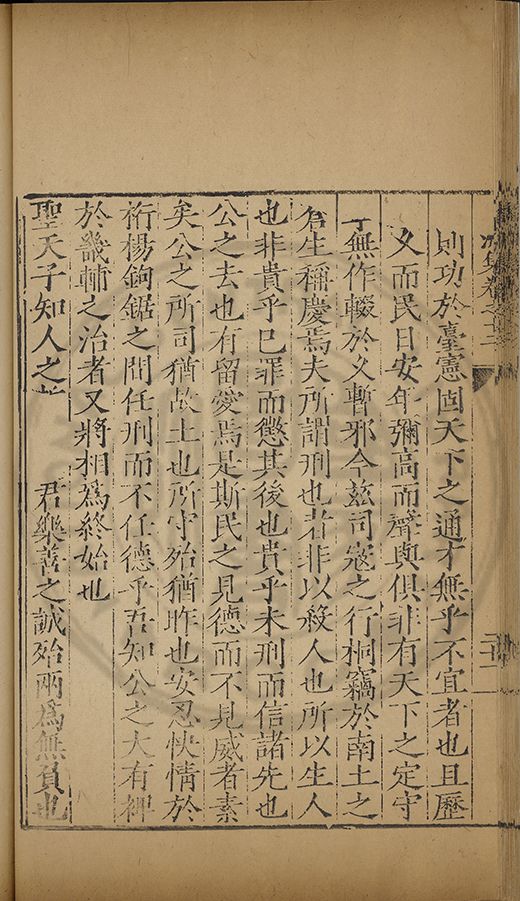 集卷之十二
則功於臺憲固天下之通才無乎不宜者也且歷
久而民日安年彌高而聲與俱非有天下之定守
無作輟於久暫邪今兹司寇之行桐竊於南土之
生稱慶焉夫所謂刑也者非以殺人也所以生人
也非貴乎巳罪而懲其後也貴乎未刑而信諸先也
公之去也有留愛焉是斯民之見德而不見威者素
矣公之所司猶故土也所守殆猶昨也安忍快情於
桁楊鉤鋸之間任刑而不任德乎吾知公之大有裨
於畿輔之治者又將相爲終始也
聖天子知人之 君樂善之誠殆兩爲無負也